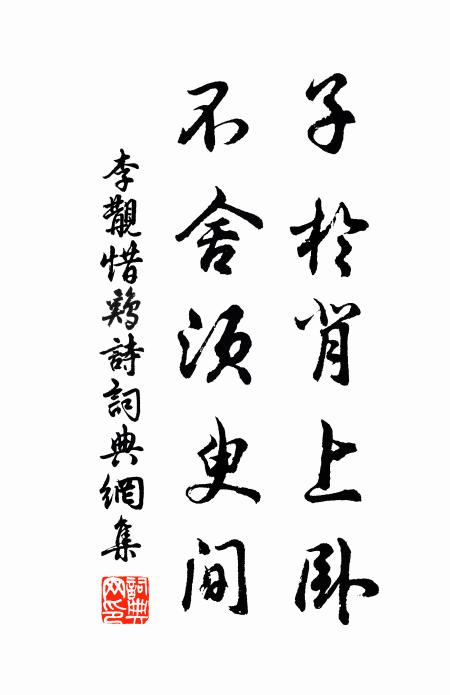 子於背上卧
不舍須臾間
李覯惜鷄詩詞典網集